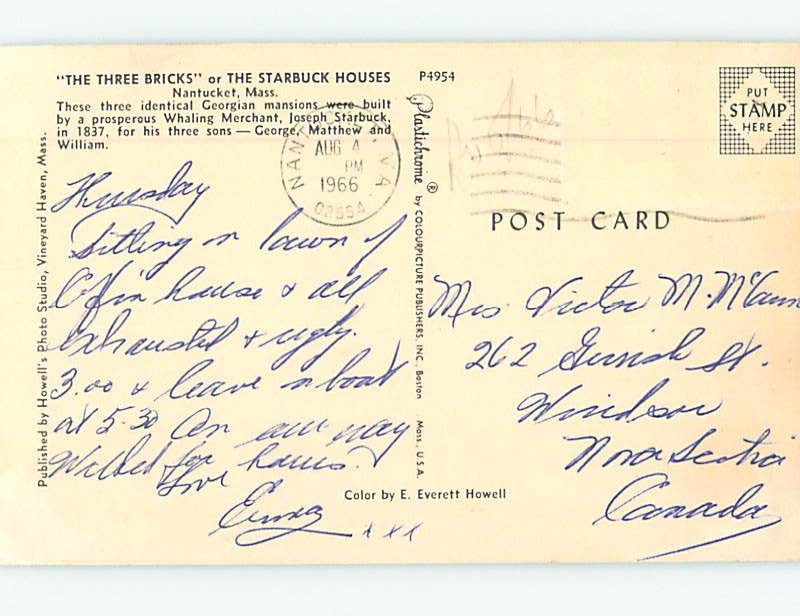 "THE THREE BRICKS" or THE STARBUCK HOUSES
Nantucket, Mass.
These three identical Georgian mansions were built
by a prosperous Whaling Merchant, Joseph Starbuck,
in 1837, for his three sons — George, Matthew and
William.
P4954
Published by Howell's Photo Studio, Vineyard Haven, Mass.
Plastichrome ® by COLOURPICTURE PUBLISHERS, INC. Boston Mass. U.S.A.
AUG 4
PM
1966
02554
PUT
STAMP
HERE
POST CARD
Thursday
Sitting on lawn of
Coffin house & all
exhausted & ugly.
3.00 & leave on boat
at 5-30 On our way
Walked for hours.
Love
xxx
Mrs Victor M.
262 St.
Windsor
Nova Scotia
Canada
Color by E. Everett Howell